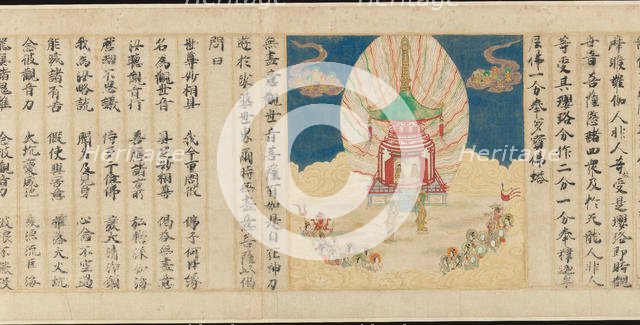 摩睺羅伽人非人等故受是瓔珞即時觀
世音菩薩愍諸四衆及於天龍人非人
等受其瓔珞分作二分一分奉釋迦牟
尼佛一分奉多寶佛塔
無盡意觀世音菩薩有如是自在神力
遊於娑婆世界爾時無盡意菩薩以偈
問曰
世尊妙相具 我今重問彼 佛子何因縁
名爲觀世音 具足妙相尊 偈答無盡意
汝聽觀音行 善應諸方所 弘誓深如海
歷劫不思議 侍多千億佛 發大清淨願
我爲汝略說 聞名及見身 心念不空過
能滅諸有苦 假使興害意 推落大火坑
念彼觀音力 火坑變成池 或漂流巨海
龍魚諸鬼難 念彼觀音力 波浪不能没
Heritage
Heritage
Heritage